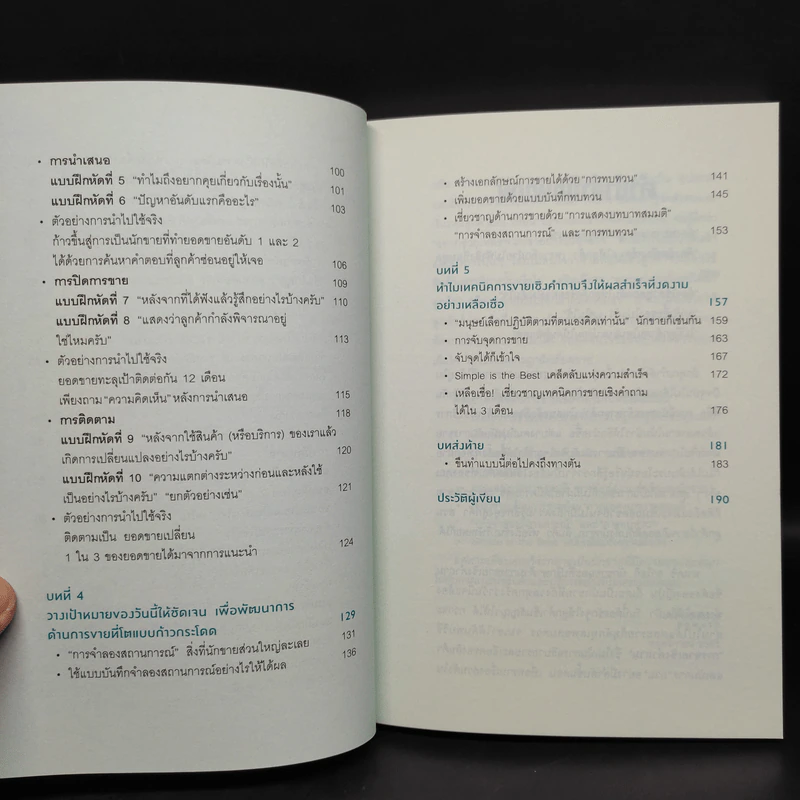 • การนำเสนอ 100
แบบฝึกหัดที่ 5 "ทำไมถึงอยากคุยเกี่ยวกับเรื่องนั้น" 101
แบบฝึกหัดที่ 6 "ปัญหาอันดับแรกคืออะไร" 103
• ตัวอย่างการนำไปใช้จริง
ก้าวขึ้นสู่การเป็นนักขายที่ทำยอดขายอันดับ 1 และ 2
ได้ด้วยการค้นหาคำตอบที่ลูกค้าซ่อนอยู่ให้เจอ 106
• การปิดการขาย 109
แบบฝึกหัดที่ 7 "หลังจากที่ได้ฟังแล้วรู้สึกอย่างไรบ้างครับ" 110
แบบฝึกหัดที่ 8 "แสดงว่าลูกค้ากำลังพิจารณาอยู่
ใช่ไหมครับ" 113
• ตัวอย่างการนำไปใช้จริง
ยอดขายทะลุเป้าติดต่อกัน 12 เดือน
เพียงถาม "ความคิดเห็น" หลังการนำเสนอ 115
• การติดตาม 118
แบบฝึกหัดที่ 9 "หลังจากใช้สินค้า (หรือบริการ) ของเราแล้ว
เกิดการเปลี่ยนแปลงอย่างไรบ้างครับ" 120
แบบฝึกหัดที่ 10 "ความแตกต่างระหว่างก่อนและหลังใช้
เป็นอย่างไรบ้างครับ" "ยกตัวอย่างเช่น" 121
• ตัวอย่างการนำไปใช้จริง
ติดตามเป็น ยอดขายเปลี่ยน
1 ใน 3 ของยอดขายได้มาจากการแนะนำ 124
บทที่ 4
วางเป้าหมายของวันนี้ให้ชัดเจน เพื่อพัฒนาการ
ด้านการขายที่โตแบบก้าวกระโดด 129
• "การจำลองสถานการณ์" สิ่งที่นักขายส่วนใหญ่ละเลย 131
• ใช้แบบบันทึกจำลองสถานการณ์อย่างไรให้ได้ผล 136
• สร้างเอกลักษณ์การขายได้ด้วย "การทบทวน" 141
• เพิ่มยอดขายด้วยแบบบันทึกทบทวน 145
• เชี่ยวชาญด้านการขายด้วย "การแสดงบทบาทสมมติ"
"การจำลองสถานการณ์" และ "การทบทวน" 153
บทที่ 5
ทำไมเทคนิคการขายเชิงคำถามจึงให้ผลสำเร็จที่งดงาม
อย่างเหลือเชื่อ 157
• "มนุษย์เลือกปฏิบัติตามที่ตนเองคิดเท่านั้น" นักขายก็เช่นกัน 159
• การจับจุดการขาย 163
• จับจุดได้ก็เข้าใจ 167
• Simple is the Best เคล็ดลับแห่งความสำเร็จ 172
• เหลือเชื่อ! เชี่ยวชาญเทคนิคการขายเชิงคำถาม
ได้ใน 3 เดือน 176
บทส่งท้าย 181
• ขืนทำแบบนี้ต่อไปคงถึงทางตัน 183
ประวัติผู้เขียน 190